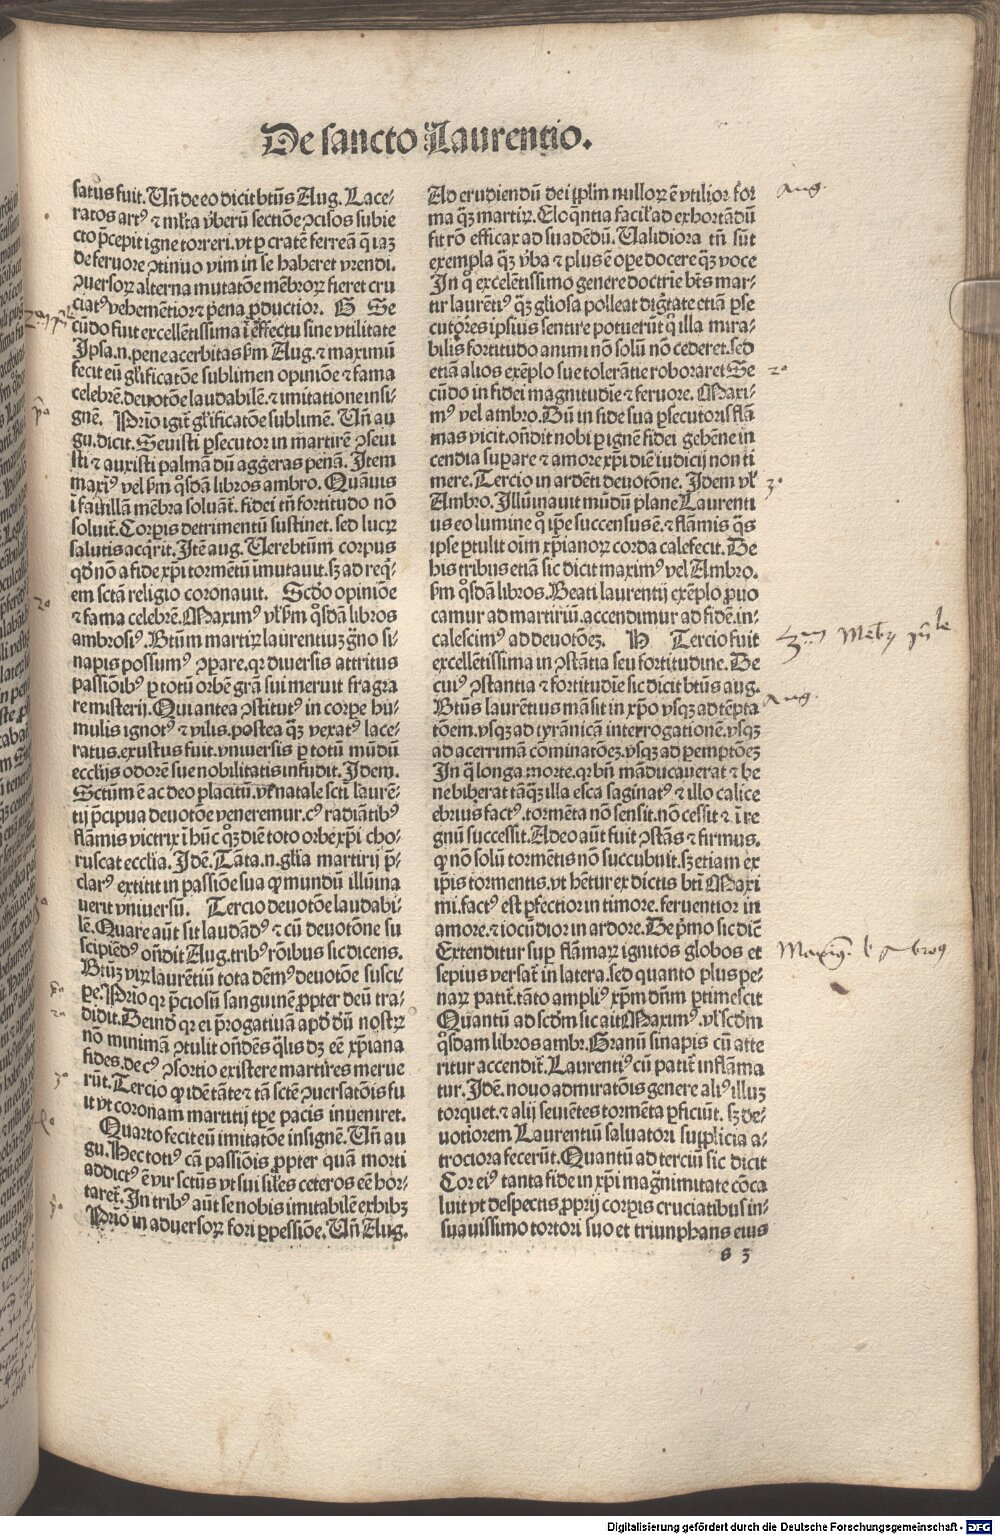 De sancto Laurentio.
satus fuit. Uñ de eo dicit btũs Aug. Lace-
ratos artꝰ ⁊ mĺta v̉berũ sectiõe ꝯcisos subie
cto p̃cepit igne torreri. vt ꝑ cratẽ ferreã q̃ iaꝫ
de feruore ꝯtinuo vim in se haberet vrendi.
ꝯuersoꝝ alterna mutatõe mẽbroꝝ fieret cru
ciatꝰ vehemẽtior ⁊ pena ꝓductior. G Se
cũdo fuit excellẽtissima ĩ effectu sine vtilitate
Ipsa .n. pene acerbitas ẜm Aug. ⁊ maximũ
fecit eũ gĺificatõe sublimen opiniõe ⁊ fama
celebrẽ. deuotõe laudabilẽ. ⁊ imitatione insi-
gnẽ. Prĩo igit̉ gĺificatõe sublimẽ. Uñ au
gu. dicit. Seuisti ꝑsecutor in martirẽ ꝓseui
sti ⁊ auxisti palmã dũ aggeras penã. Item
maxiꝰ vel ẜm qͦsdã libros ambro. Quãuis
ĩ fauillã mẽbra soluãt̉. fidei tñ fortitudo nõ
soluit̉. Corpis detrimentũ sustinet. sed lucꝝ
salutis acq̃rit. Itẽ aug. Uere btũm corpus
qd̉ nõ a fide xp̃i tormẽtũ imutauit. sꝫ ad req̃-
em sctã religio coronauit. Scdo opiniõe
⁊ fama celebrẽ. Maximꝰ vĺ ẜm qͦsdã libros
ambrosiꝰ. Btũm martiꝝ laurentiuꝫ g̃no si-
napis possumꝰ ꝯpare. qꝛ diuersis attritus
passiõibꝰ ꝑ totũ orbẽ grã sui meruit fragra
re misterij. Qui antea ꝯstitutꝰ in corpe hu-
milis ignotꝰ ⁊ vilis. postea q̃ꝫ vexatꝰ lace-
ratus. exustus fuit. vniuersis ꝑ totũ mũdũ
eccĺijs odorẽ sue nobilitatis infudit. Idem.
Sctũm ẽ ac deo placitũ. vt natale scti laurẽ-
tij p̃cipua deuotõe veneremur. cꝰ radiãtibꝰ
flãmis victrix ĩ hũc qͦꝫ diẽ toto orbe xp̃i cho-
ruscat ecclia. Idẽ. Tãta .n. glia martirij p̃-
clarꝰ extitit in passiõe sua ꝙ mundũ illũina
uerit vniuersũ. Tercio deuotõe laudabi-
lẽ. Quare aũt sit laudãdꝰ ⁊ cũ deuotõne su
scipiẽdꝰ oñdit Aug. tribꝰ rõibus sic dicens.
Btuꝫ viꝝ laurẽtiũ tota dẽmꝰ deuotõe susci
pe. Prĩo qꝛ p̃ciosũ sanguinẽ ꝓpter deũ tra-
didit. Deinď qꝛ ei p̃rogatiuã apď dũ nostꝝ
nõ minimã ꝯtulit oñdẽs q̃lis dꝫ eẽ xp̃iana
fides. de cꝰ ꝯsortio existere martires merue
rũt. Tercio ꝙ idẽ tãte ⁊ tã sctẽ ꝯuersatõis fu
it vt coronam martirij tp̃e pacis inueniret.
Quarto fecit eũ imitatõe insignẽ. Uñ au
gu. Hec totiꝰ cã passiõis ꝓpter quã morti
addictꝰ ẽ vir sctũs vt sui siĺes ceteros eẽ hor-
taret̉. In tribꝰ aũt se nobis imitabilẽ exhibꝫ
Prĩo in aduersoꝝ fori ꝑpessiõe. Uñ Aug.
Ad erudiendũ dei ipľm nulloꝝ ẽ vtilior for
ma q̃ꝫ martiꝝ. Eloq̃ntia facil̉ ad exhortãdũ
fit rõ efficax ad suadẽdũ. Ualidiora tñ sũt
exempla q̃ꝫ v̉ba ⁊ plus ẽ ope docere q̃ꝫ voce
In qͦ excelẽtissimo genere doctrie bt̃s mar-
tir laurẽtiꝰ q̃ꝫ gĺiosa polleat digtate etiã ꝑse
cutores ipsius sentire potuerũt q̃ illa mira-
bilis fortitudo animi nõ solũ nõ cederet. sed
etiã alios exẽplo sue tolerãtie roboraret Se
cũdo in fidei magnitudie ⁊ feruore. Maxi-
mꝰ vel ambro. Dũ in fide sua ꝑsecutoris flã
mas vicit. oñdit nobi ꝑ ignẽ fidei gehẽne in
cendia supare ⁊ amore xp̃i diẽ iudicij non ti
mere. Tercio in ardẽti deuotõne. Idem vĺ
Ambro. Illũinauit mũdũ plane Laurenti
us eo lumine qͦ ip̃e succensus ẽ. ⁊ flãmis q̃s
ipse ꝑtulit oim xp̃ianoꝝ corda calefecit. De
his tribus etiã sic dicit maximꝰ vel Ambro.
ẜm qͦsdã libros. Beati laurentij exẽplo ꝓuo
camur ad martiriũ. accendimur ad fidẽ. in-
calescimꝰ ad deuotõeꝫ. H Tercio fuit
excellẽtissima in ꝯstãtia seu fortitudine. De
cuiꝰ ꝯstantia ⁊ fortitudie sic dicit btũs aug.
Btũs laurẽtius mãsit in xp̃o vsqꝫ ad tẽpta
tõem. vsqꝫ ad tyrãnicã interrogationẽ. vsqꝫ
ad acerrimã cõminatõeꝫ. vsqꝫ ad peremptõeꝫ
In q̃ longa morte. qꝛ bñ mãducauerat ⁊ be
ne biberat tãq̃ꝫ illa esca saginatꝰ ⁊ illo calice
ebrius factꝰ. tormẽta nõ sensit. nõ cessit ⁊ ĩ re
gnũ successit. Adeo aũt fuit ꝯstãs ⁊ firmus.
ꝙ nõ solũ tormẽtis nõ succubuit. sꝫ etiam ex
ip̃is tormentis. vt hẽtur ex dictis bt̃i Maxi
mi. factꝰ est ꝑfectior in timore. feruentior in
amore. ⁊ iocũdior in ardore. De p̃mo sic diẽ
Extenditur suꝑ flãmaꝝ ignitos globos et
sepius versat̉ in latera. sed quanto plus pe-
naꝝ patit̉. tãto ampliꝰ xp̃m dñm ꝑtimescit
Quantũ ad scďm sic ait Maximꝰ. vĺ scďm
qͦsdam libros ambr. Granũ sinapis cũ atte
ritur accendit̉. Laurentiꝰ cũ patit̉ inflãma
tur. Idẽ. nouo admiratõis genere aliꝰ illuꝫ
torquet. ⁊ alij seuiẽtes tormẽta ꝑficiũt. sꝫ de-
uotiorem Laurentiũ saluatori supplicia a-
trociora fecerũt. Quantũ ad terciũ sic dicit
Cor eiꝰ tanta fide in xp̃i magnimitate cõca
luit vt despectis ꝓprij corpis cruciatibus in-
suauissimo tortori suo et triumphans eius
s 3
aug.
2º
3º
Aug
Digitalisierung gefördert durch die Deutsche Forschungsgemeinschaft - DFG